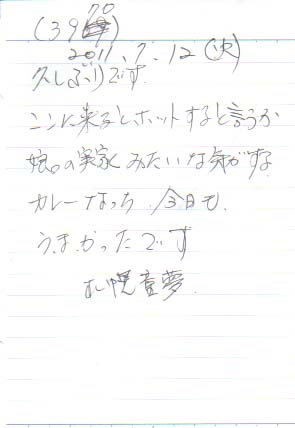 (3970)
2011.7.12(火)
久しぶりです
ここに来るとホットすると言うか
娘の実家みたいな気がする
カレーなっち 今日も.
うまかったです
札幌童夢.